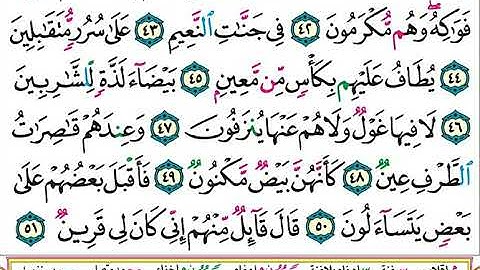 فَوَٰكِهُ وَهُم مُّكْرَمُونَ ٤٢ فِي جَنَّٰتِ ٱلنَّعِيمِ ٤٣ عَلَىٰ سُرُرٍ مُّتَقَٰبِلِينَ
٤٤ يُطَافُ عَلَيْهِم بِكَأْسٍ مِّن مَّعِينٍ ٤٥ بَيْضَآءَ لَذَّةٍ لِّلشَّٰرِبِينَ
٤٦ لَا فِيهَا غَوْلٌ وَلَا هُمْ عَنْهَا يُنزَفُونَ ٤٧ وَعِندَهُمْ قَٰصِرَٰتُ
ٱلطَّرْفِ عِينٌ ٤٨ كَأَنَّهُنَّ بَيْضٌ مَّكْنُونٌ ٤٩ فَأَقْبَلَ بَعْضُهُمْ عَلَىٰ
بَعْضٍ يَتَسَآءَلُونَ ٥٠ قَالَ قَآئِلٌ مِّنْهُمْ إِنِّي كَانَ لِي قَرِينٌ ٥١